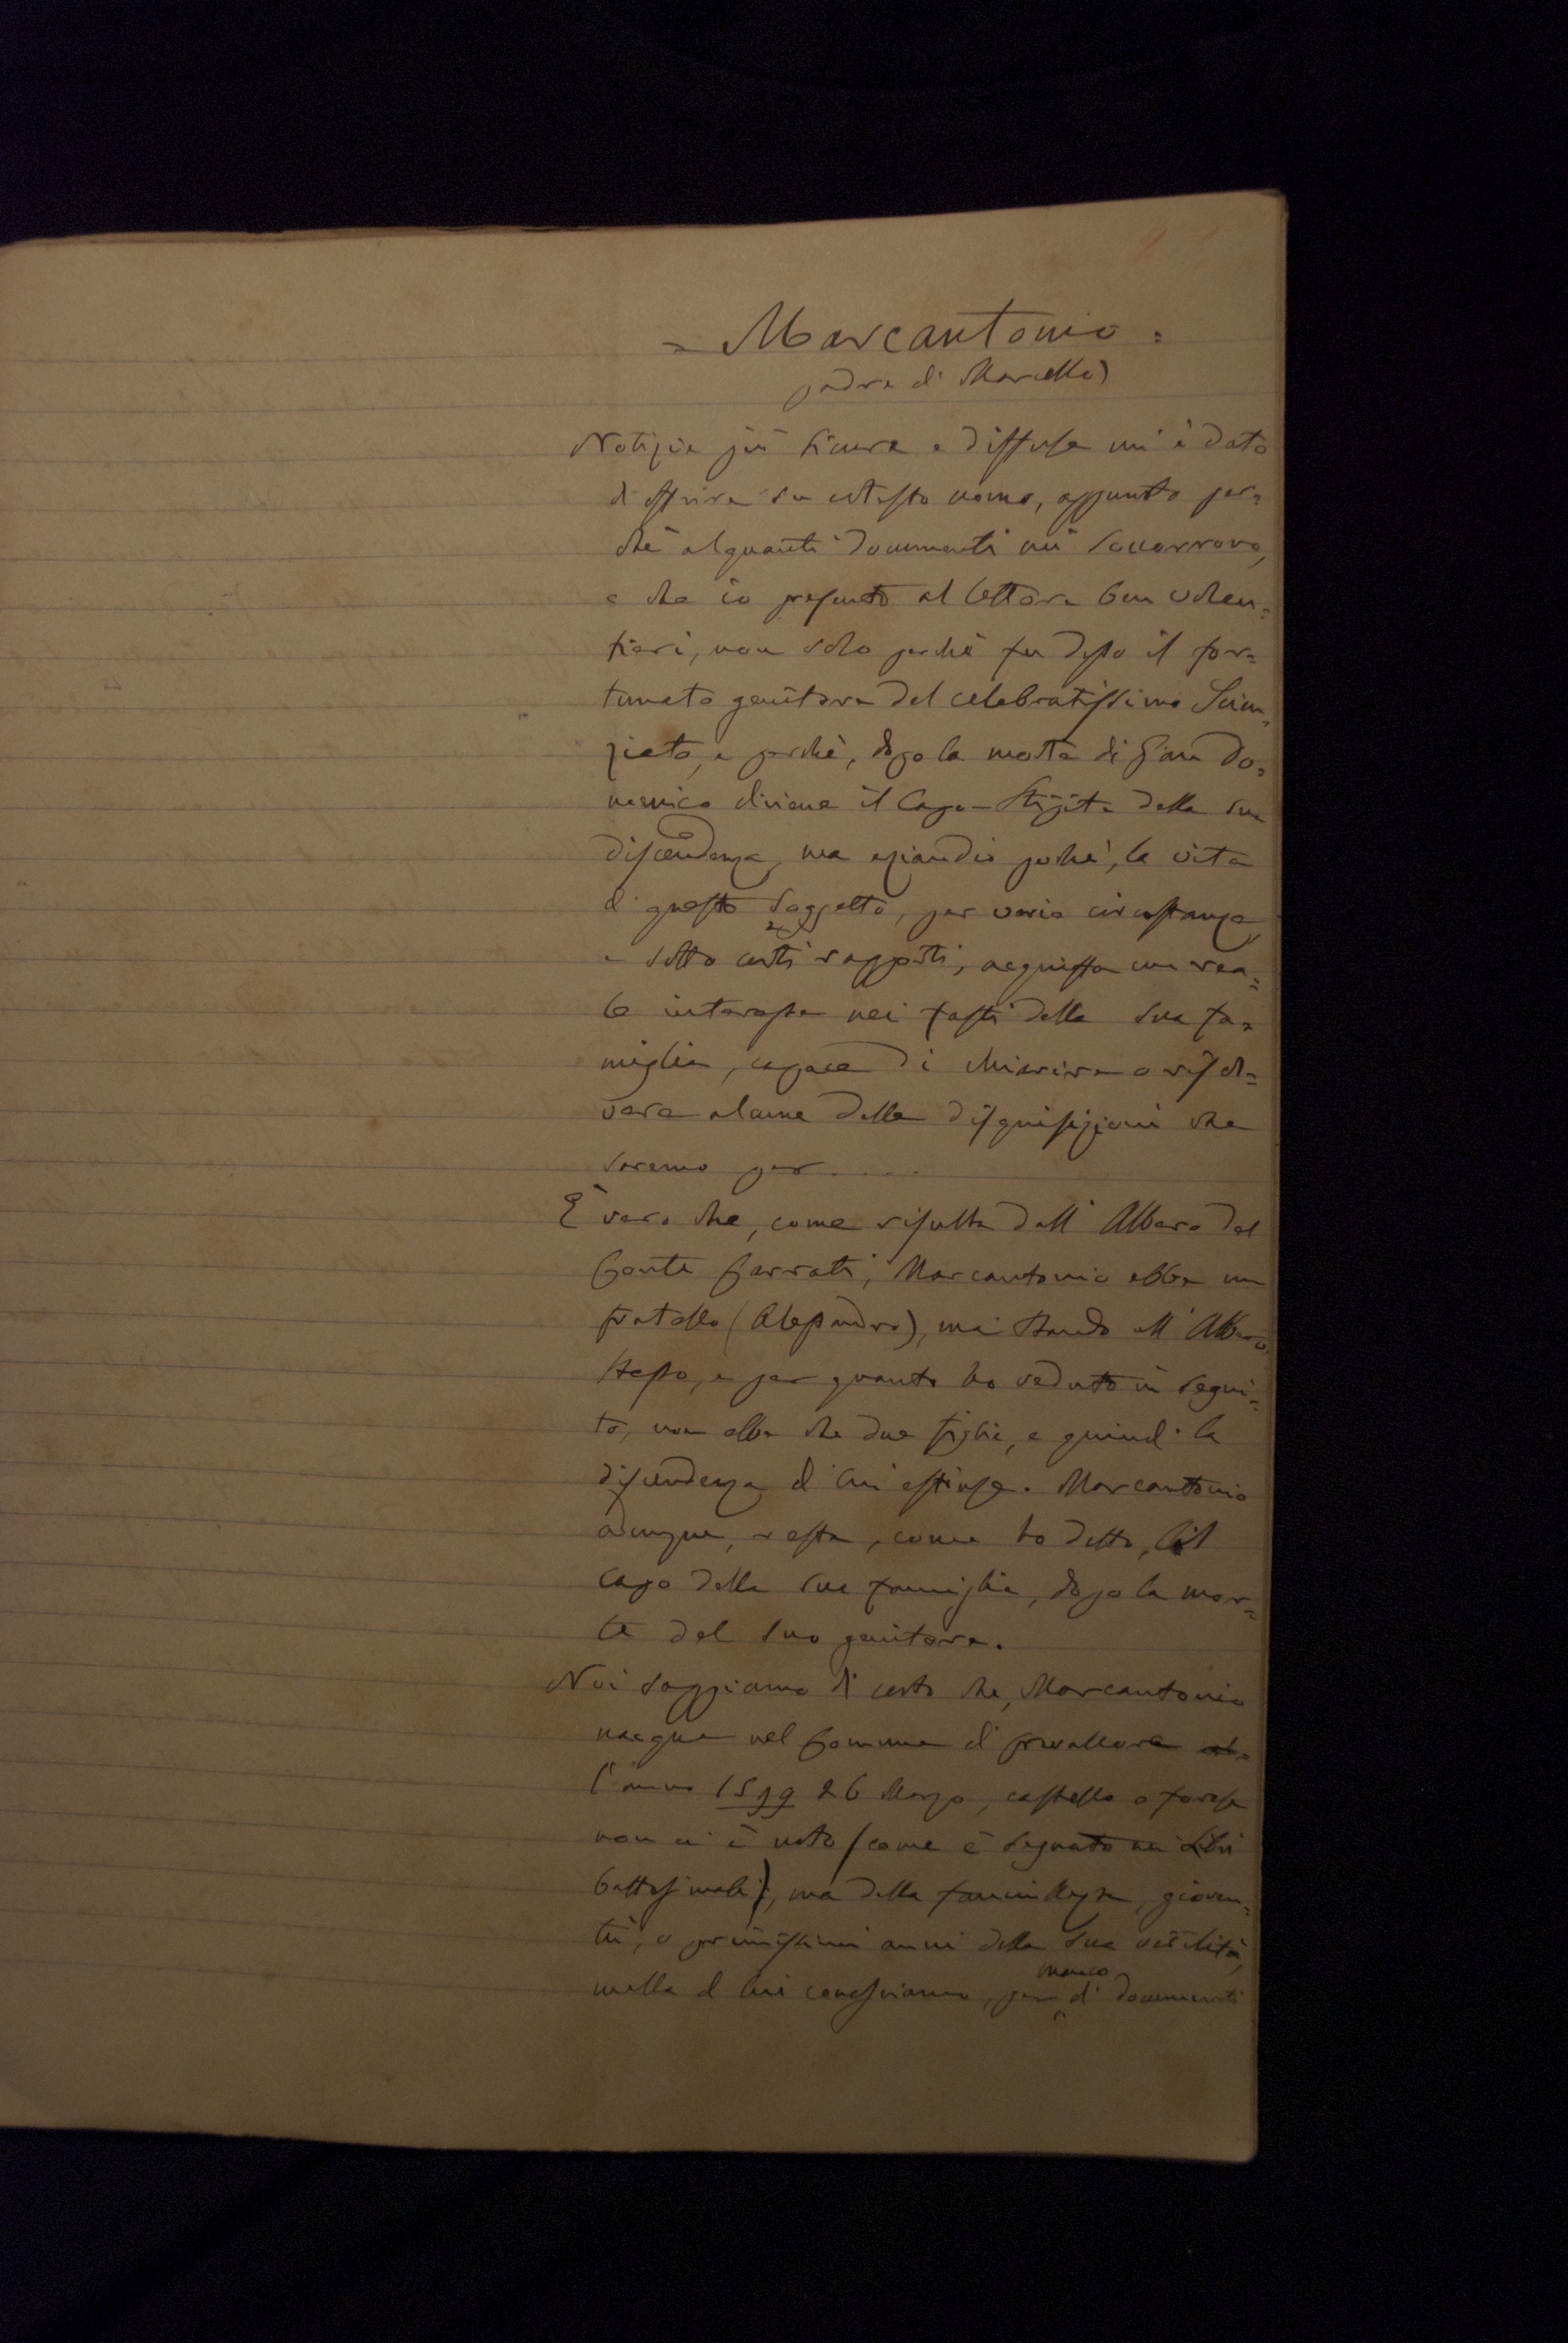 = Marcantonio =
padre di Marcello)
Notizie più sicure e diffuse mi è dato
di offrire su cotesto uomo, appunto per=
chè alquanti documenti mi soccorrono,
e che io presento al lettore ben volen=
tieri, non solo perchè fu desso il for=
tunato genitore del celebratissimo Scien=
ziato, e perchè, dopo la morte di Gian Do=
menico diviene il Capo-Stipite della sua
discendenza, ma eziandio perchè, la vita
di questo soggetto, per varie circostanze,
e sotto certi rapporti, acquista un rea=
le interesse nei fasti della sua fa=
miglia, capace di chiarire o risol=
vere alcune delle disquisizioni che
saremo per .....
È vero che, come risulta dall' Albero del
Conte Carrati, Marcantonio ebbe un
fratello (Alessandro), ma stando all' Albero
stesso, e per quanto ho veduto in segui=
to, non ebbe che due figlie, e quindi la
discendenza di lui estinse. Marcantonio
adunque, resta, come ho detto, il
capo della sua famiglia, dopo la mor=
te del suo genitore.
Noi sappiamo di certo che, Marcantonio
nacque nel Comune di Crevalcore
l'anno 1599 26 Marzo, castello o forese
non ci è noto (come è segnato nei Libri
battesimali), ma della fanciullezza, gioven=
tù, e primissimi anni della sua virilità,
nulla di lui conosciamo, per manco di documenti